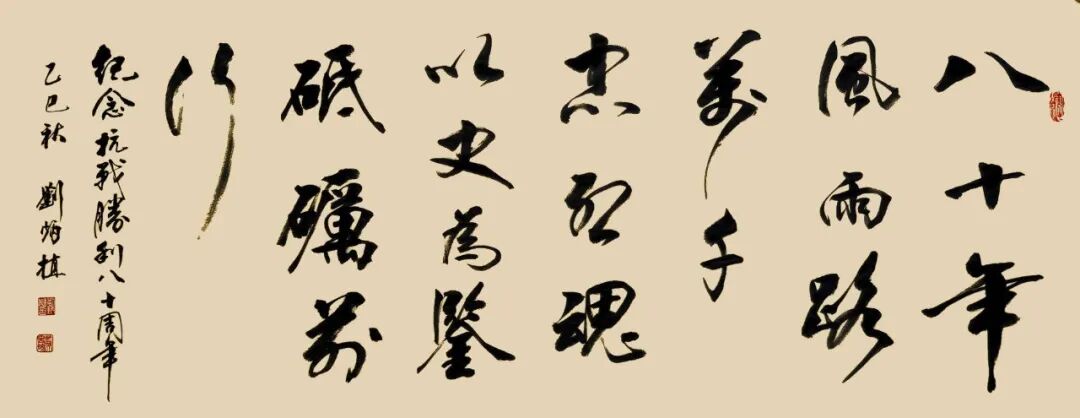 八十年
風雨路
萬千
忠烈魂
以史為鑒
砥礪前
行
紀念抗戰勝利八十周年
乙巳秋 劉